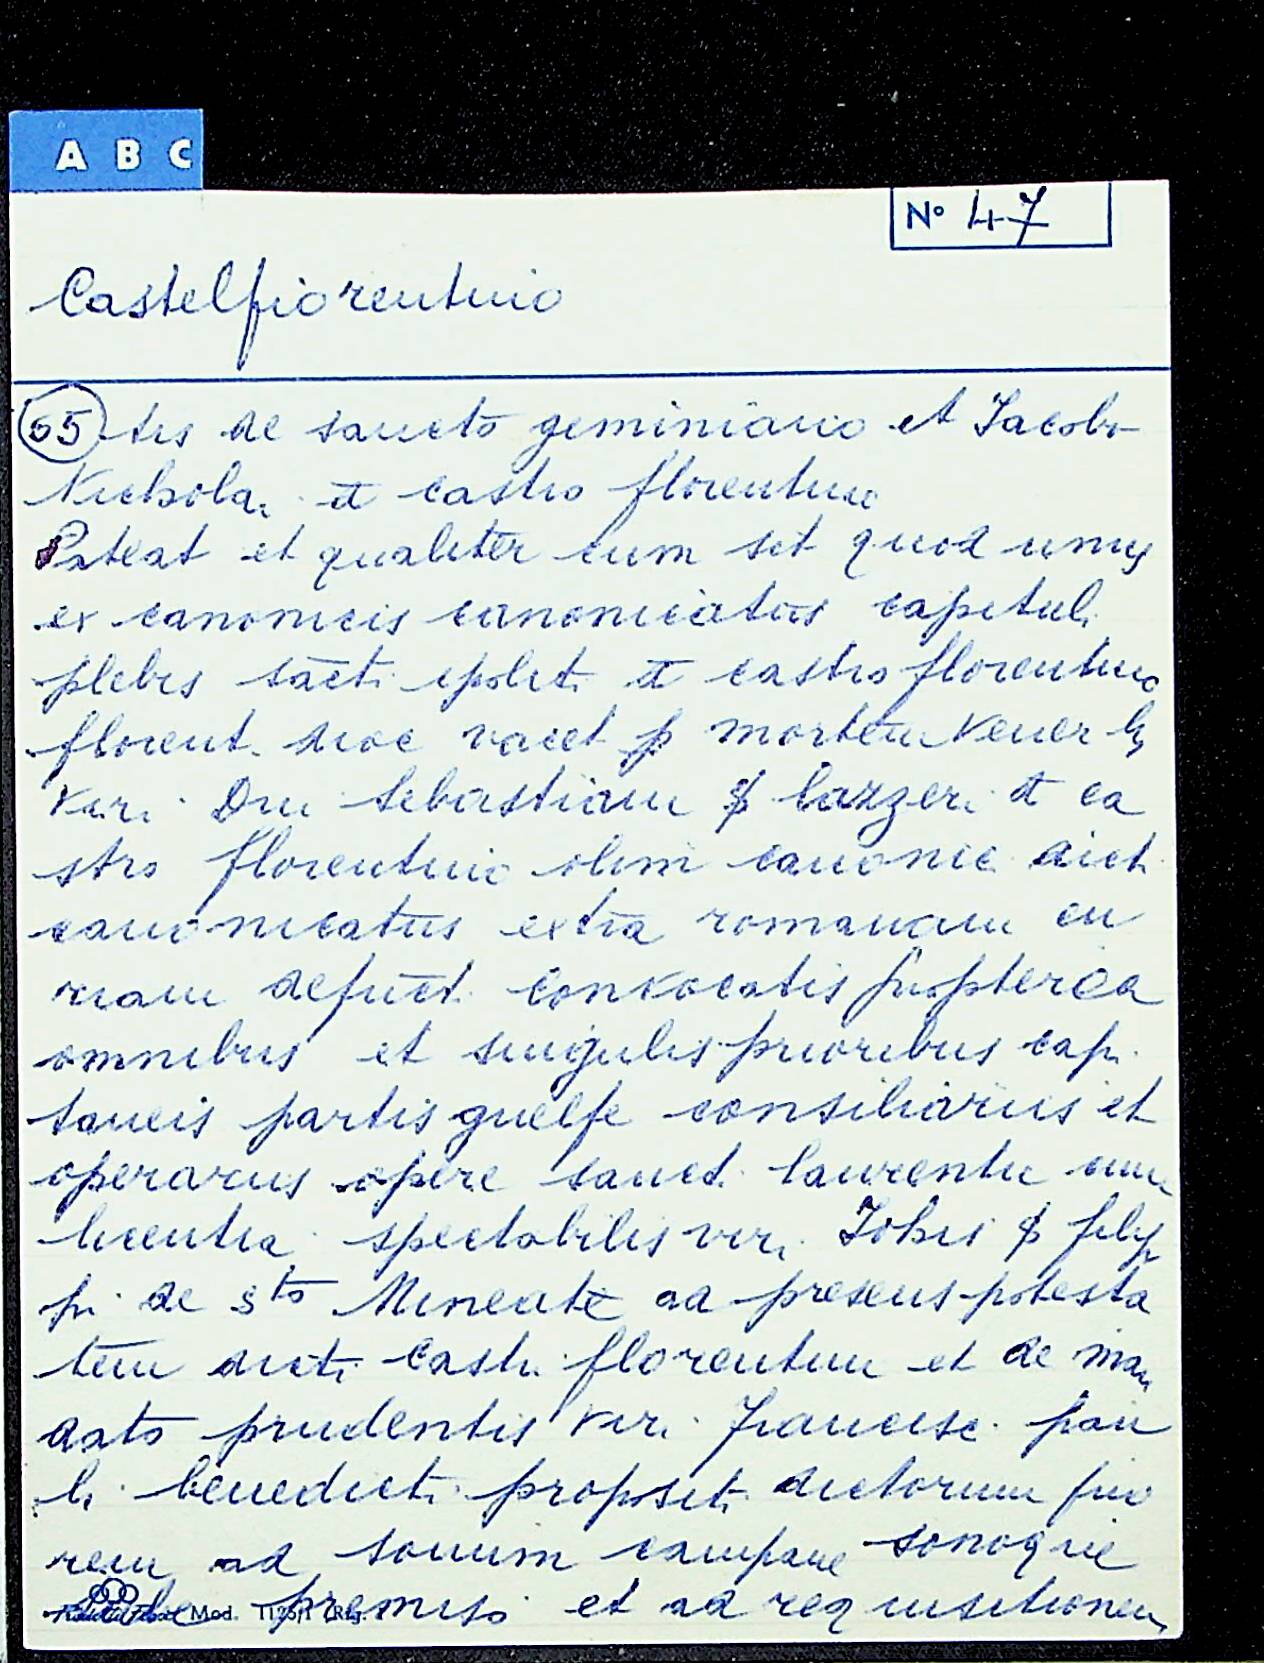 A B C
N° 47
Castelfiorentino
65 tis de sancto geminiano et Jacobo
Nicholai d castro florentino
Pateat et qualiter cum sit quod unus
ex canonicis canonicatus capituli
plebis sacti ipoliti d castro florentino
florent. dioc vacet p mortem vener
viri Dni Sebastiani lazzeri d ca
stro florentino olim canonic dict
canonicatus extra romanam cu
riam defuct. convocatis propterea
omnibus et singulis prioribus capi
taneis partis guelfe consiliariis et
operariis opere sanct. laurentii cum
licentia spectabilis viri Johis filip
pi de sto Mineate ad presens potesta
tem dicti castri florentini et de man
dato prudentis viri francisc. pau
li benedicti propositi dictorum prio
rem ad sonum campane sonoque
premiso et ad requisitionem
Mod.